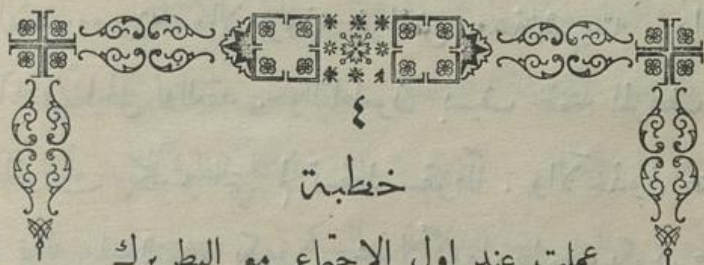 ٤
خطبة
عملت عند اول الاجتماع مع البطريرك